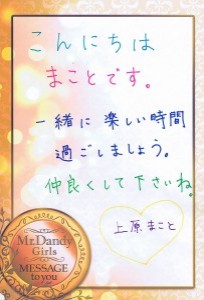 こんにちは
まことです。
一緒に楽しい時間
過ごしましょう。
仲良くして下さいね。
上原まこと
Mr.Dandy
Girls
MESSAGE
to you